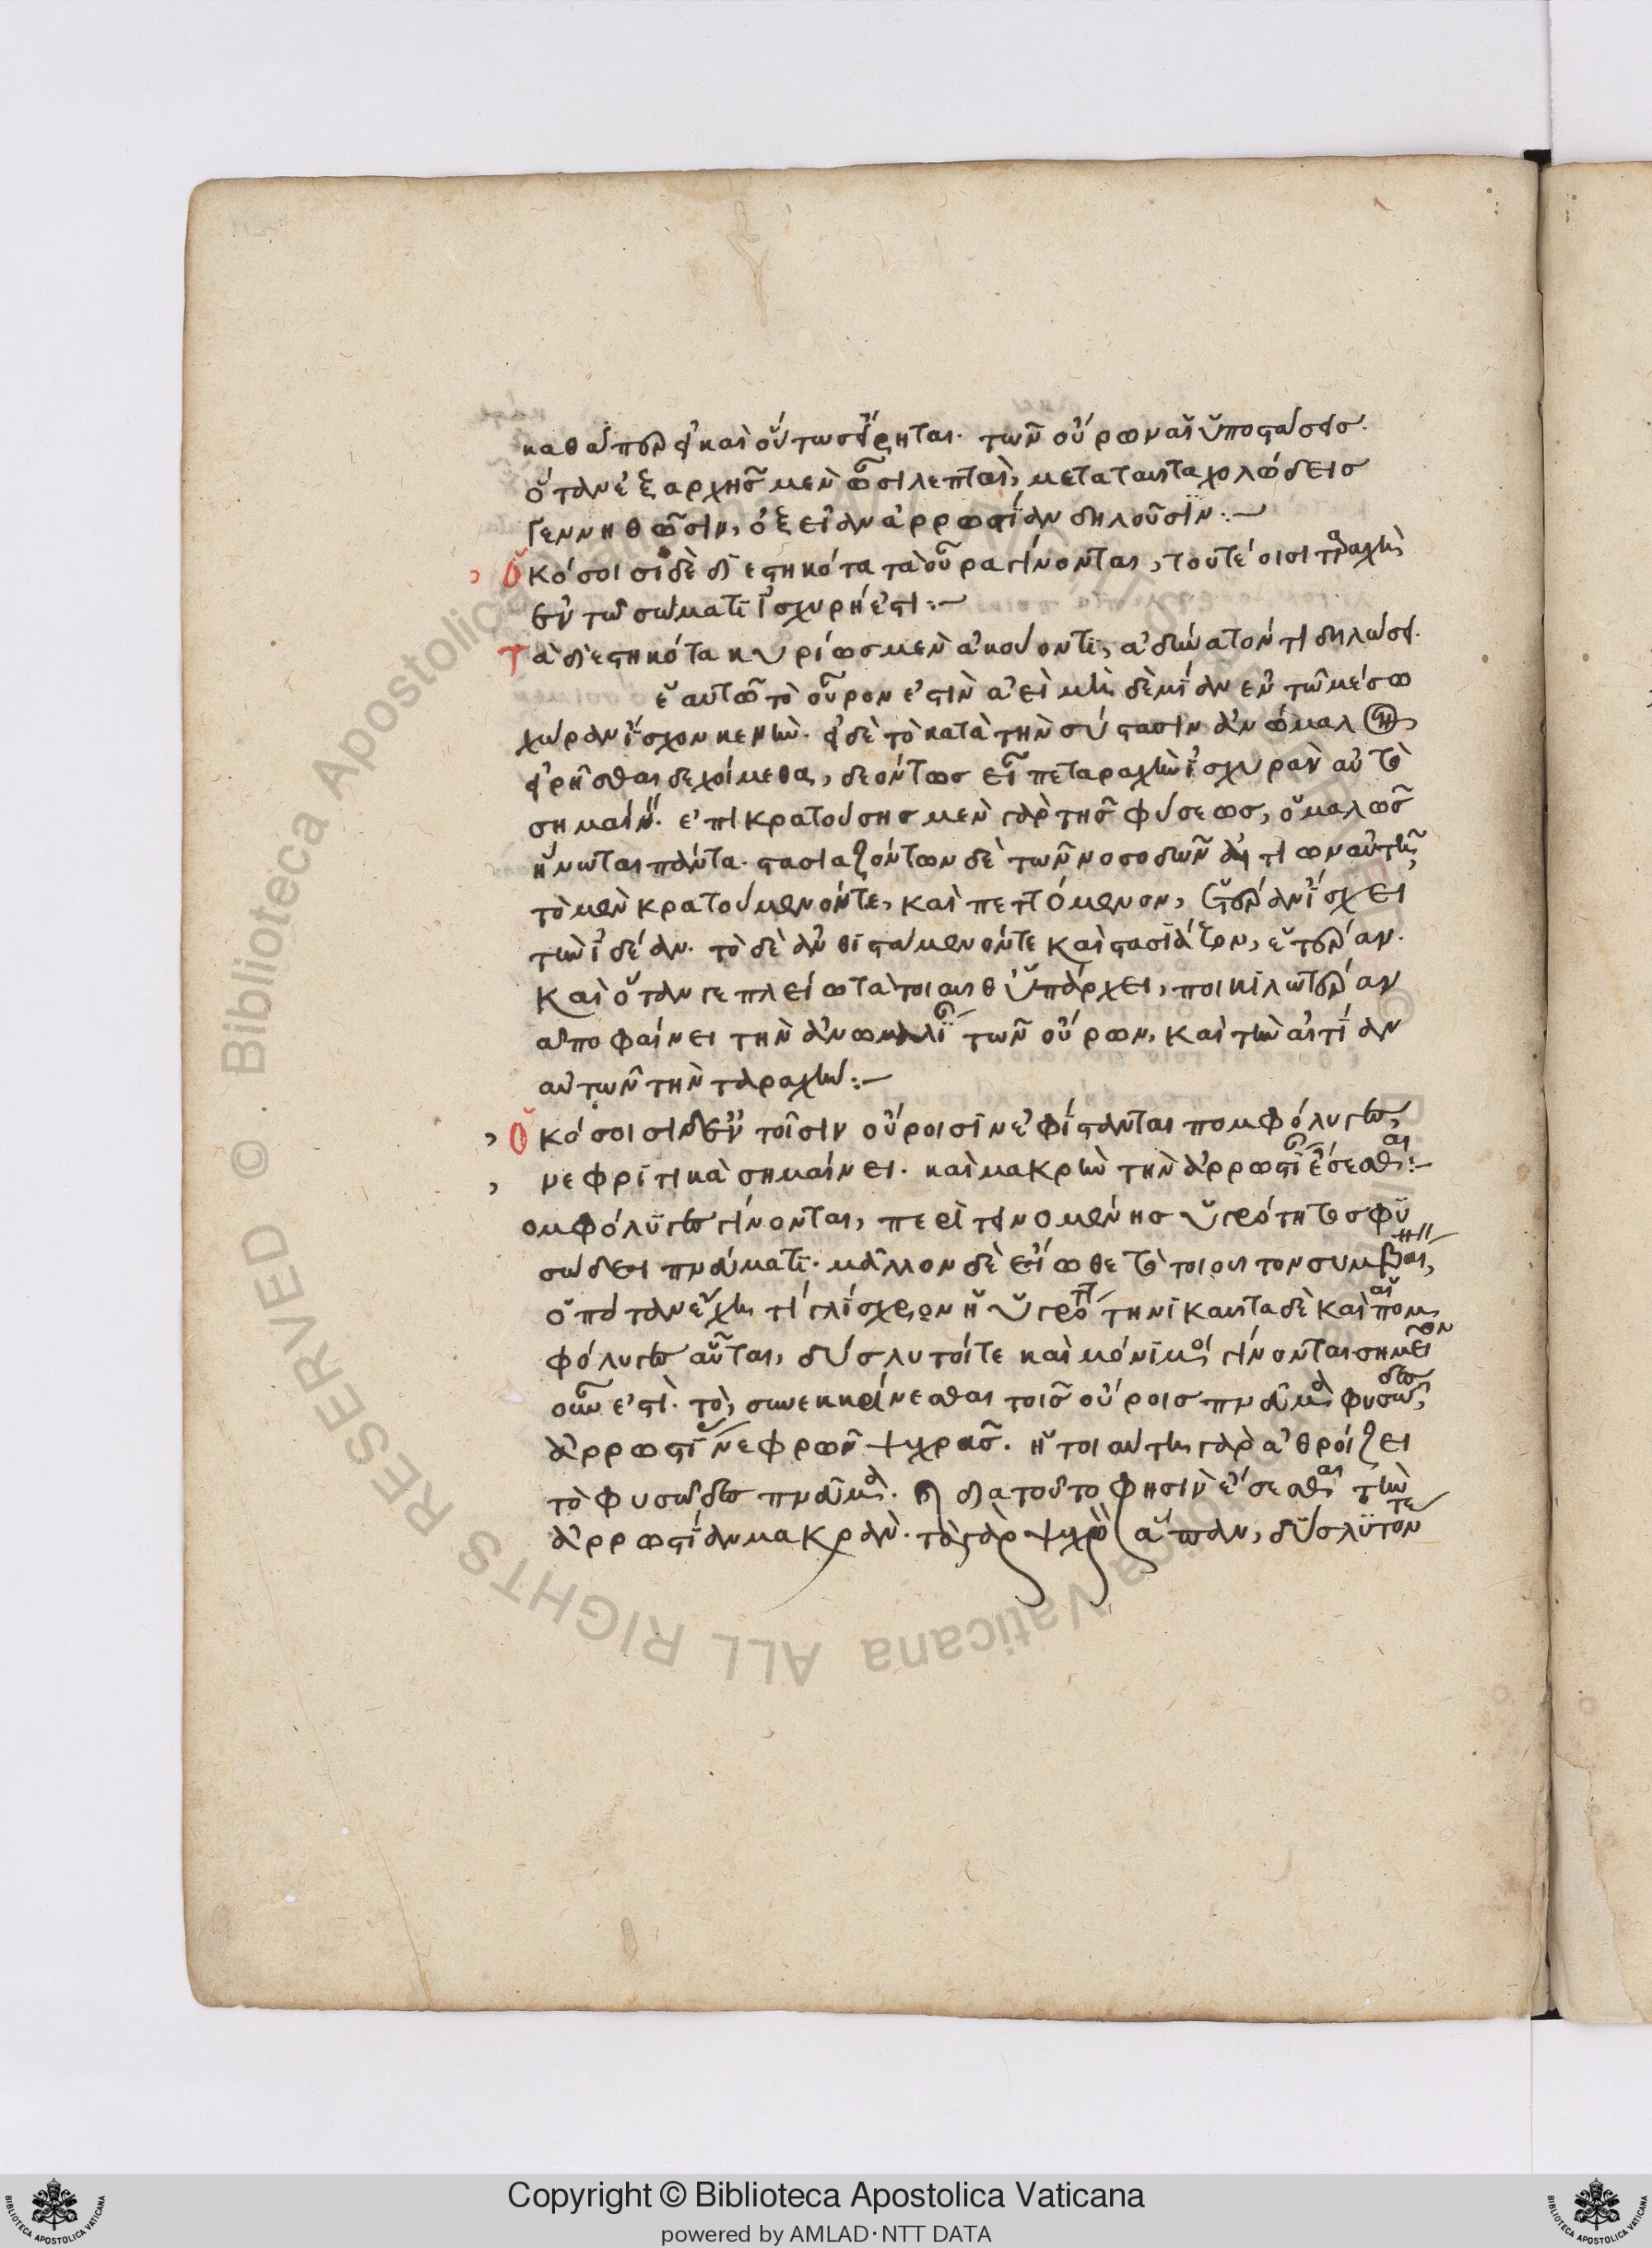 καθάπερ εἰ καὶ οὕτως εἴρηται. τῶν οὔρων αἱ ὑποστάσεις.
ὅταν ἐξ ἀρχῆς μὲν ὦσι λεπταὶ, μετὰ ταῦτα χολώδεις
γεννηθῶσιν, ὀξεῖαν ἀρρωστίαν δηλοῦσιν:~
Ὁκόσοισι δὲ διεστηκότα τὰ οὖρα γίνονται, τουτέοισι ταραχὴ
ἐν τῷ σώματι ἰσχυρή ἐστι:~
Τὰ διεστηκότα κυρίως μὲν ἀκούοντι, ἀδύνατόν τι δηλώσει.
ἑαυτῷ τὸ οὖρον ἐστὶν ἀεὶ μηδὲ μίαν ἐν τῷ μέσῳ
χώραν ἴσχον κενὴν. εἰ δὲ τὸ κατὰ τὴν σύστασιν ἀνώμαλον
εἰρῆσθαι δεχοίμεθα, δεόντως εἴποι γε ταραχὴν ἰσχυρὰν αὐτὸ
σημαίνειν. ἐπικρατούσης μὲν γὰρ τῆς φύσεως, ὁμαλῶς
ἥνωται πάντα. στασιαζόντων δὲ τῶν νοσωδῶν αἰτιῶν αὐτῆς
τὸ μὲν κρατούμενόν τε, καὶ πεττόμενον, ἑτέραν ἴσχει
τὴν ἰδέαν. τὸ δὲ ἀνθιστάμενόν τε καὶ στασιάζον, ἑτέραν.
καὶ ὅταν γε πλείω τὰ τοιαῦθ' ὑπάρχει, ποικιλωτέραν
ἀποφαίνει τὴν ἀνωμαλίαν τῶν οὔρων, καὶ τὴν αἰτίαν
αὐτῶν τὴν ταραχήν:~
Ὁκόσοισι δ' ἐν τοῖσιν οὔροισιν ἐφίστανται πομφόλυγες,
νεφριτικὰ σημαίνει. καὶ μακρὴν τὴν ἀρρωστίην ἔσεσθαι:~
ομφόλυγες γίνονται, περιτεινομένης ὑγρότητος φυ
σώδει πνεύματι. μᾶλλον δὲ εἴωθε τὸ τοιοῦτον συμβῆναι,
ὁπόταν ἔχῃ τι γλίσχρον ἡ ὑγρότης. τηνικαῦτα δὲ καὶ αἱ πομ
φόλυγες αὗται, δύσλυτοί τε καὶ μόνιμοι γίνονται σημεῖον
οὖν ἐστι. τὸ, συνεκκρίνεσθαι τοῖς οὔροις πνεῦμα φυσῶδες,
ἀρρωστίαν νεφρῶν ψυχρᾶς. ἡ τοιαύτη γὰρ ἀθροίζει
τὸ φυσῶδες πνεῦμα. καὶ διατοῦτο φησὶν ἔσεσθαι τὴν
ἀρρωστίαν μακρὰν. τὸ γὰρ ψυχρὸν ἅπαν, δύσλυτόν τε